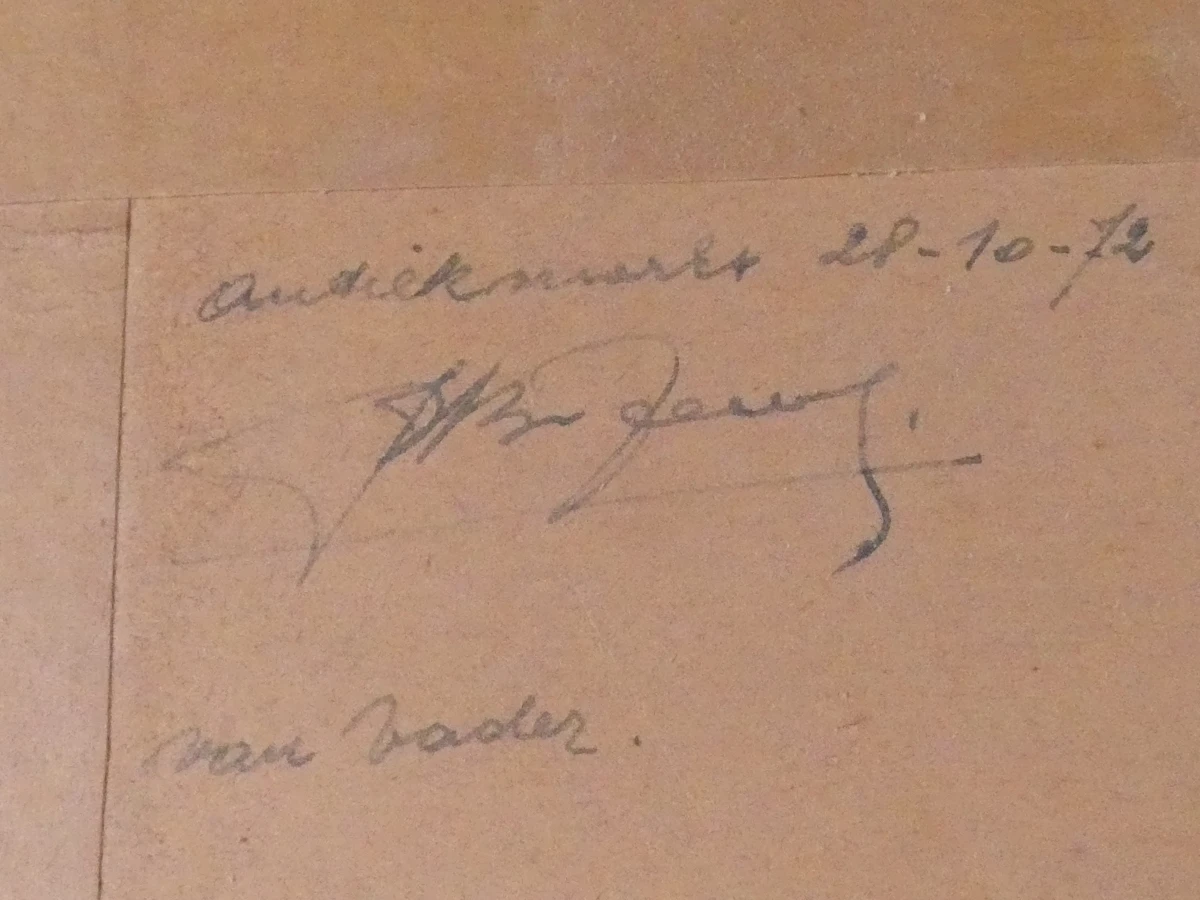 Antiekmarkt 28-10-72
van Vader.